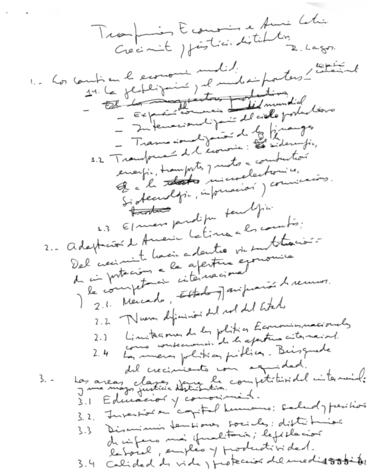 Transformaciones Economía e América Latina
Crecimiento y justicia distributiva
R. Lagos
1.- Los cambios en la economía mundial:
1.1. La globalización y el
- Expansión comercio mundial
- Internacionalización del ciclo productivo
- Transnacionalización de las finanzas
1.2 Transformación de la Economía: siderurgia,
energía, transporte y
a la microelectrónica,
biotecnología, información y comunicación.
1.3 El nuevo paradigma tecnológico
2.- Adaptación de América Latina a los cambios:
Del crecimiento hacia adentro vía sustitución
de importación a la apertura económica
y la competencia internacional
2.1. Mercado, y asignación de recursos.
2.2 Nueva definición del rol del Estado
2.3 Limitaciones de las políticas Económicas nacionales
como consecuencia de la apertura internacional
2.4 Las nuevas políticas públicas. Búsqueda
del crecimiento con equidad.
3.- Las areas claves para la competitividad internacional
y una mayor justicia distributiva
3.1 Educación y
3.2. Inversión en capital humano: salud y previsión
3.3 Disminuir tensiones sociales: distribución
de ingreso más igualitaria; legislación
laboral, empleo y productividad.
3.4 Calidad de vida y protección del medio